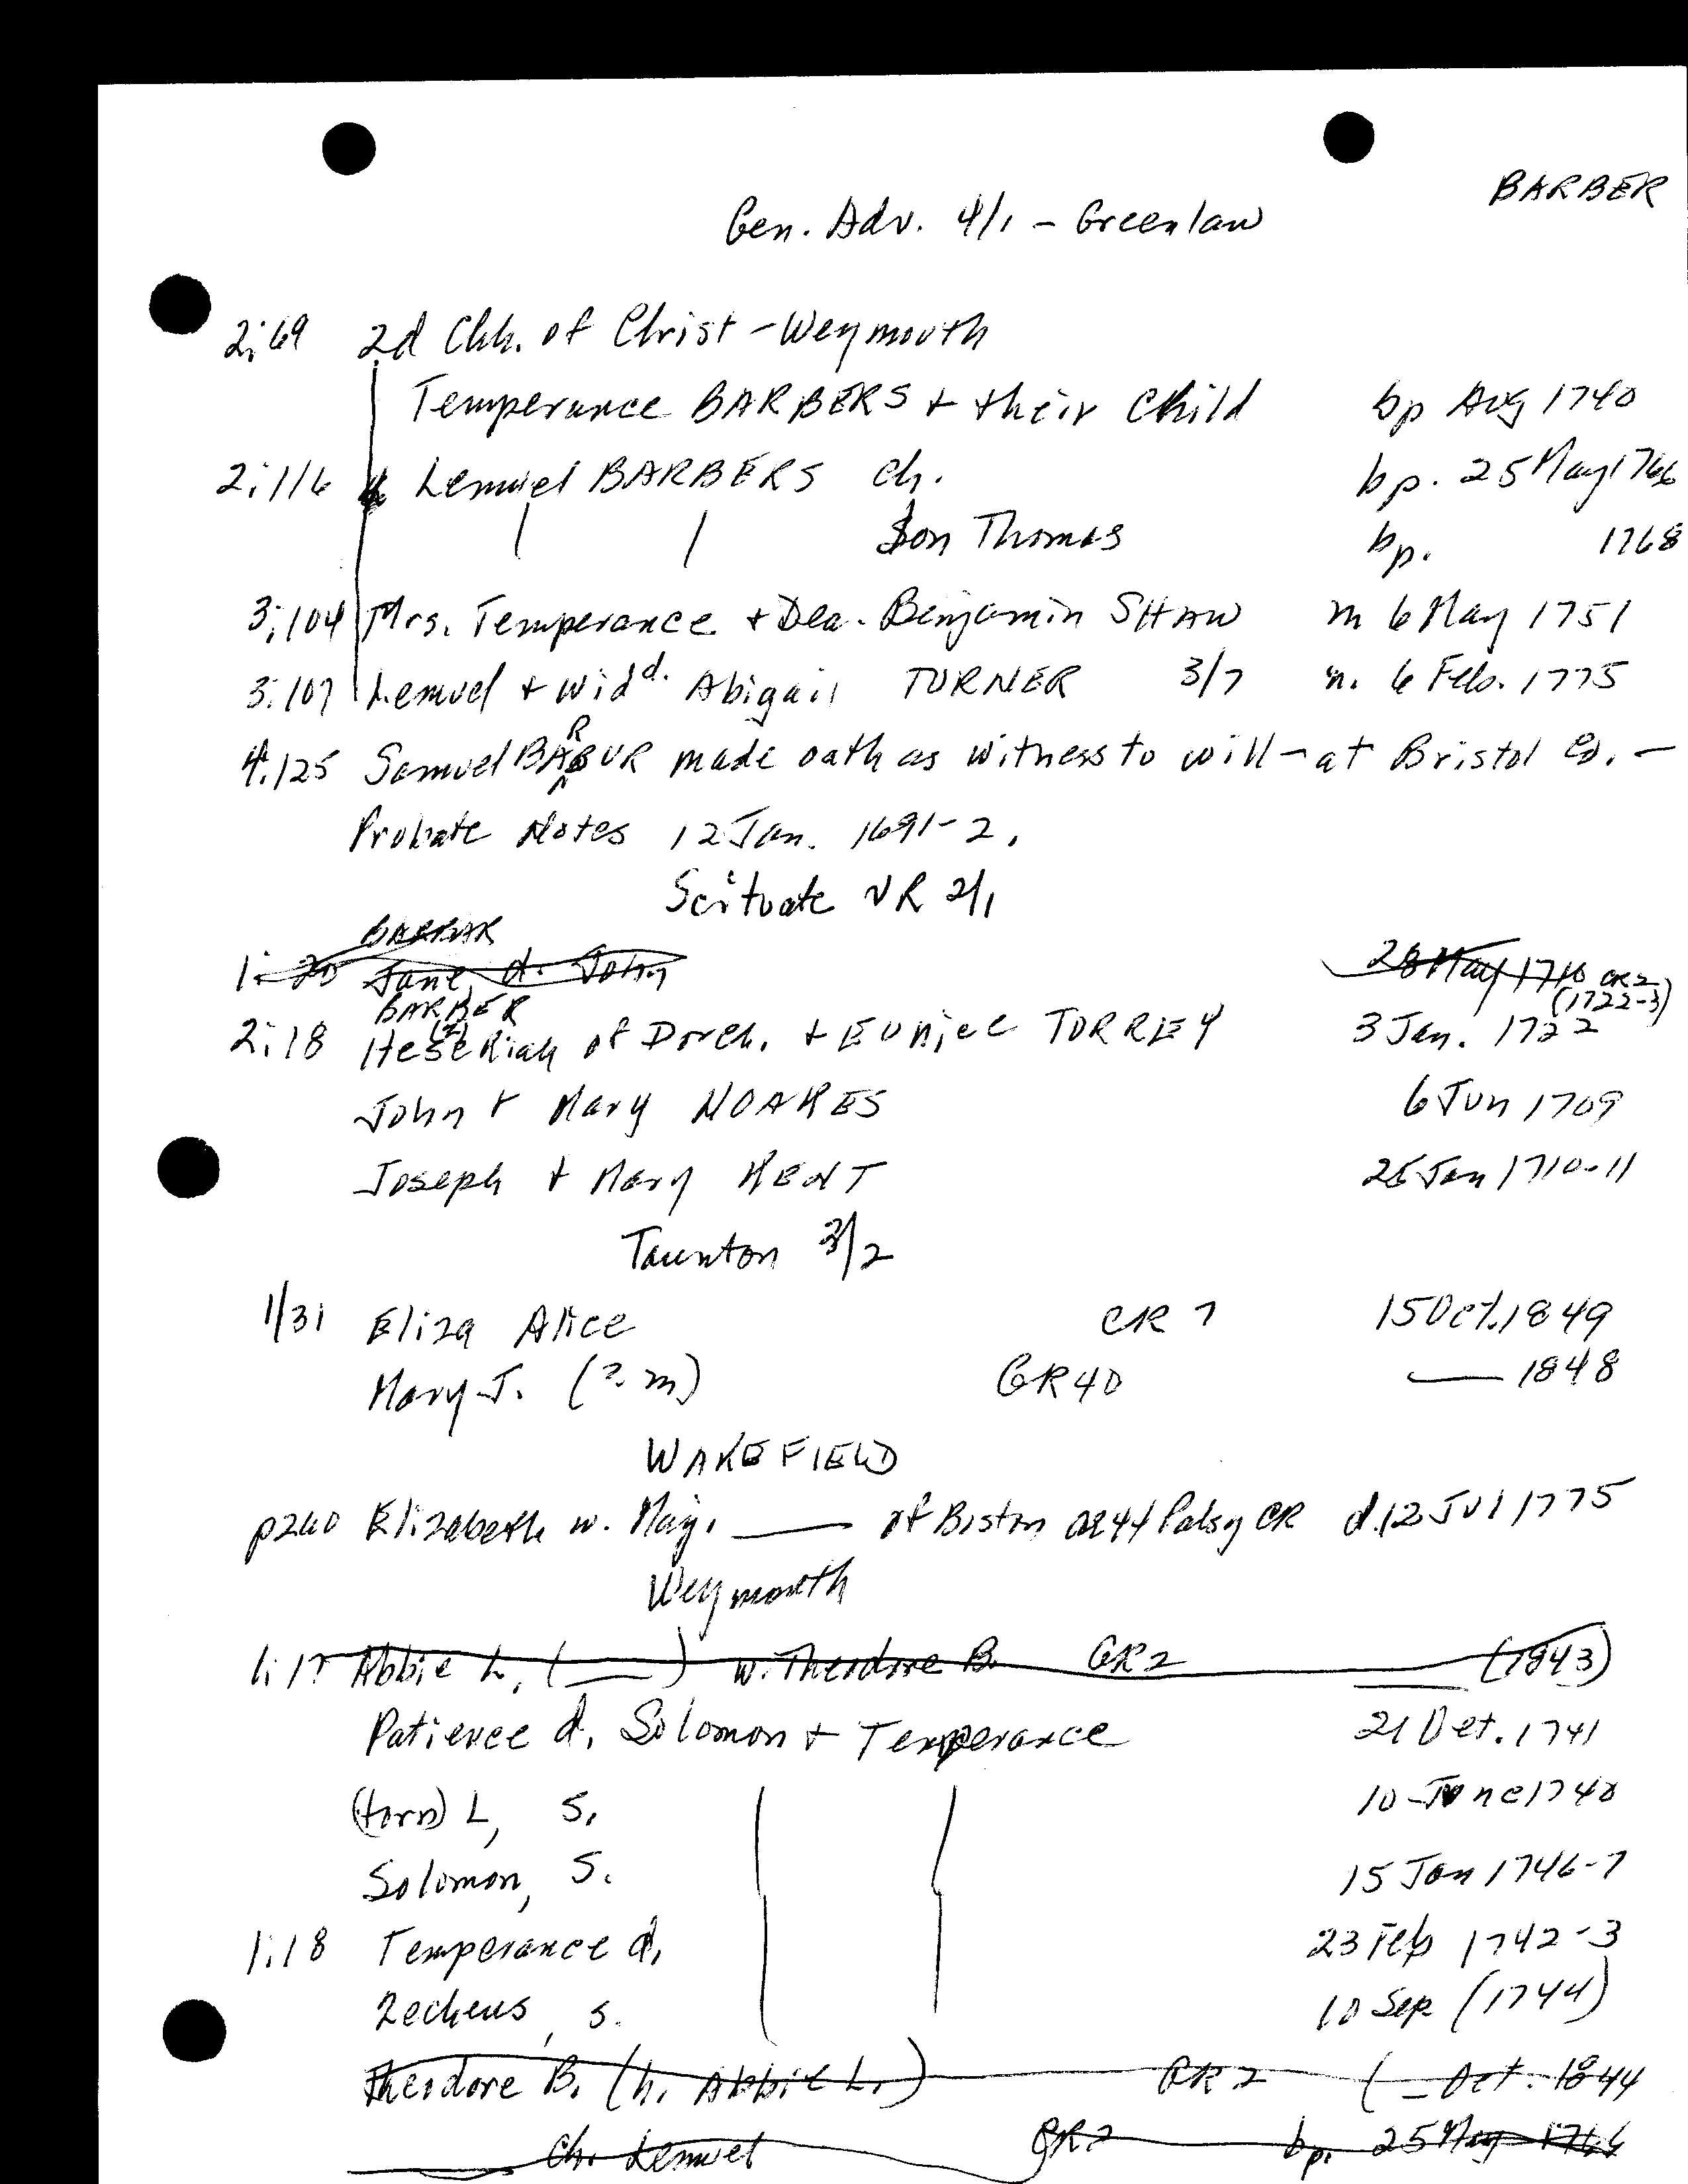 BARBER
Gen. Adv. 4/1 - Greenlaw
2:69 2d Chh. of Christ - Weymouth
Temperance BARBERS + their Child bp Aug 1740
2:116 Lemuel BARBERS ch. bp. 25 May 1766
Son Thomas bp. 1768
3:104 Mrs. Temperance + Dea. Benjamin SHAW m 6 May 1751
3:107 Lemuel + Widd. Abigail TURNER 3/7 m. 6 Feb. 1775
4:125 Samuel BARBUR made oath as witness to will - at Bristol Co. -
Probate Notes 12 Jan. 1691-2.
Scituate VR 2/1
BARBAR
1:20 Jane, d. John 28 May 1710 CR2
BARBER (1722-3)
2:18 Hesekiah (z) of Dorch. + Eunice TORREY 3 Jan. 1722
John + Mary NOAKES 6 Jun 1709
Joseph + Mary KENT 25 Jan 1710-11
Taunton 3/2
1/31 Eliza Alice CR 7 15 Oct. 1849
Mary J. (? m) GR40 — 1848
WAKEFIELD
p240 Elizabeth w. Maj. — of Boston ae 44 Palsy CR d. 12 Jul 1775
Weymouth
1:17 Abbie L. ( — ) w. Theodore B. GR2 — (1843)
Patience d. Solomon + Temperance 21 Oct. 1741
(torn) L, S. 10 June 1740
Solomon, S. 15 Jan 1746-7
1:18 Temperance d. 23 Feb 1742-3
Zecheus, s. 10 Sep (1744)
Theodore B. (h. Abbie L.) GR2 ( - Oct. 1844
— ch. Lemuel GR2 bp. 25 May 1766